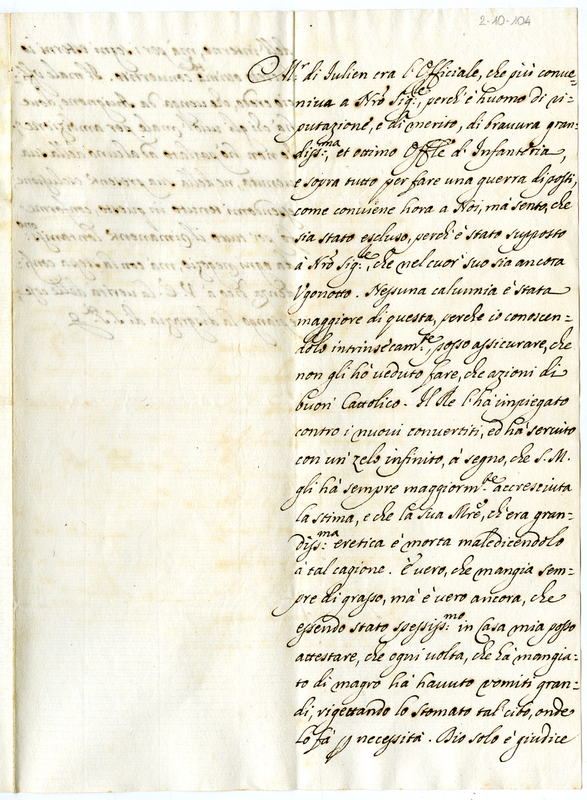 2-10-104
Mr. di Iulien era l'Officiale, che più conue=
niua a Nrõ Sig.re, perch'è huomo di ri=
putazione, e di merito, di brauura gran=
diss:ma, et ottimo Offle d'Infanteria,
e sopra tutto per fare una guerra di posti,
come conviene hora a Noi, mà sento, che
sia stato escluso, perch'è stato supposto
à Nrõ Sig.re, che nel cuor' suo sia ancora
Vgonotto. Nessuna calunnia è stata
maggiore di questa, perche io conoscen=
dolo intrinsecam.te, posso assicurare, che
non gli hò veduto fare, che azioni di
buon' Cattolico. Il Re l'hà impiegato
contro i nuoui conuertiti, ed hà seruito
con un' zelo infinito, à segno, che S. M.
gli hà sempre maggiorm.te accresciuta
la stima, e che la sua Mrẽ, ch'era gran=
diss:ma eretica è morta maledicendolo
à tal cagione. È vero, che mangia sem=
pre di grasso, mà è vero ancora, che
essendo stato spessiss:mo in Casa mia posso
attestare, che ogni volta, che hà mangia=
to di magro hà hauuto vomiti gran=
di, rigettando lo stomaco tal' cibo, onde
lo fà p necessità. Dio solo è giudice